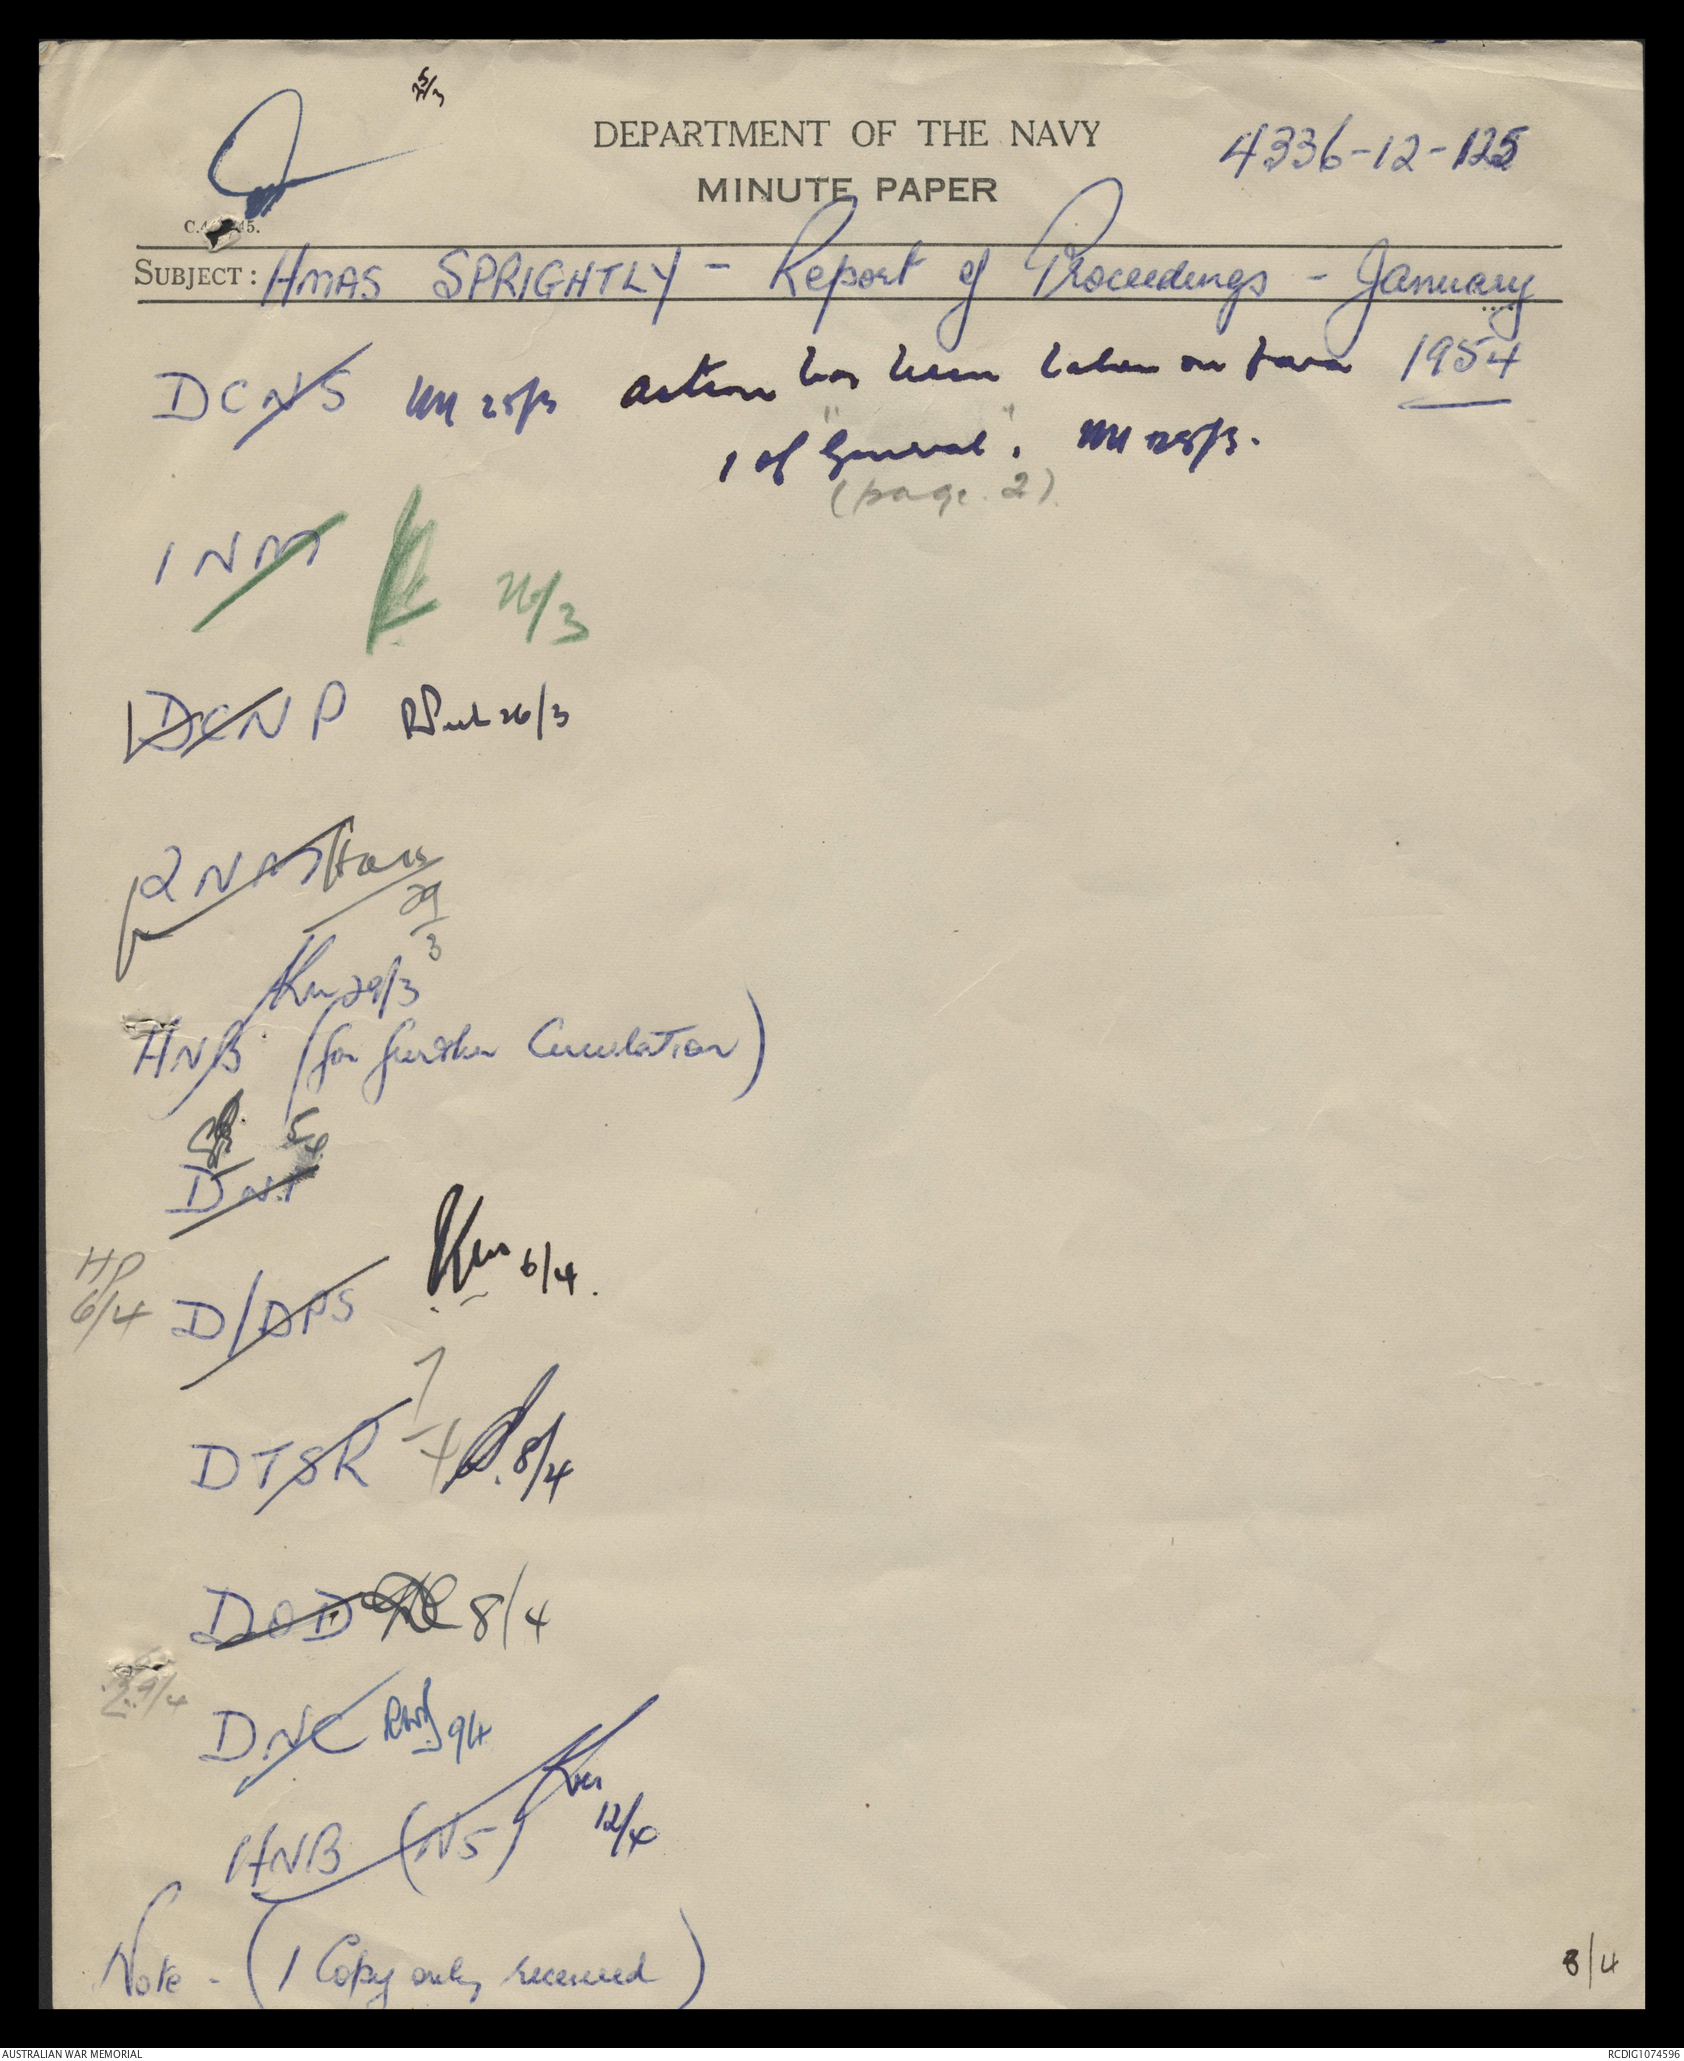 5/3
DEPARTMENT OF THE NAVY
4336-12-125
MINUTE PAPER
SUBJECT: HMAS SPRIGHTLY - Report of Proceedings - January
1954
DCNS 25/3 action has been taken on para
1 of "General". 25/3.
(page 2)
1 NM 26/3
DCNP 26/3
2 NM
29/3
29/3
HNB (for further Circulation)
5/4
DNI
HP
6/4
D/DPS 6/4.
7/4
DTSR 8/4
DOD 8/4
9/4
DNC 9/4
12/4
HNB (NS)
Note - (1 Copy only received)
8/4
AUSTRALIAN WAR MEMORIAL
RCDIG1074596